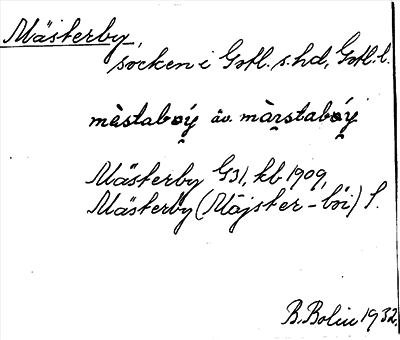 Mästerby,
socken i Gotl. s. hd, Gotl. l.
mèstabọý äv. màṛstabọý
Mästerby G31, kb 1909,
Mästerby (Måjster-böi) S.
B. Bolin 1932.